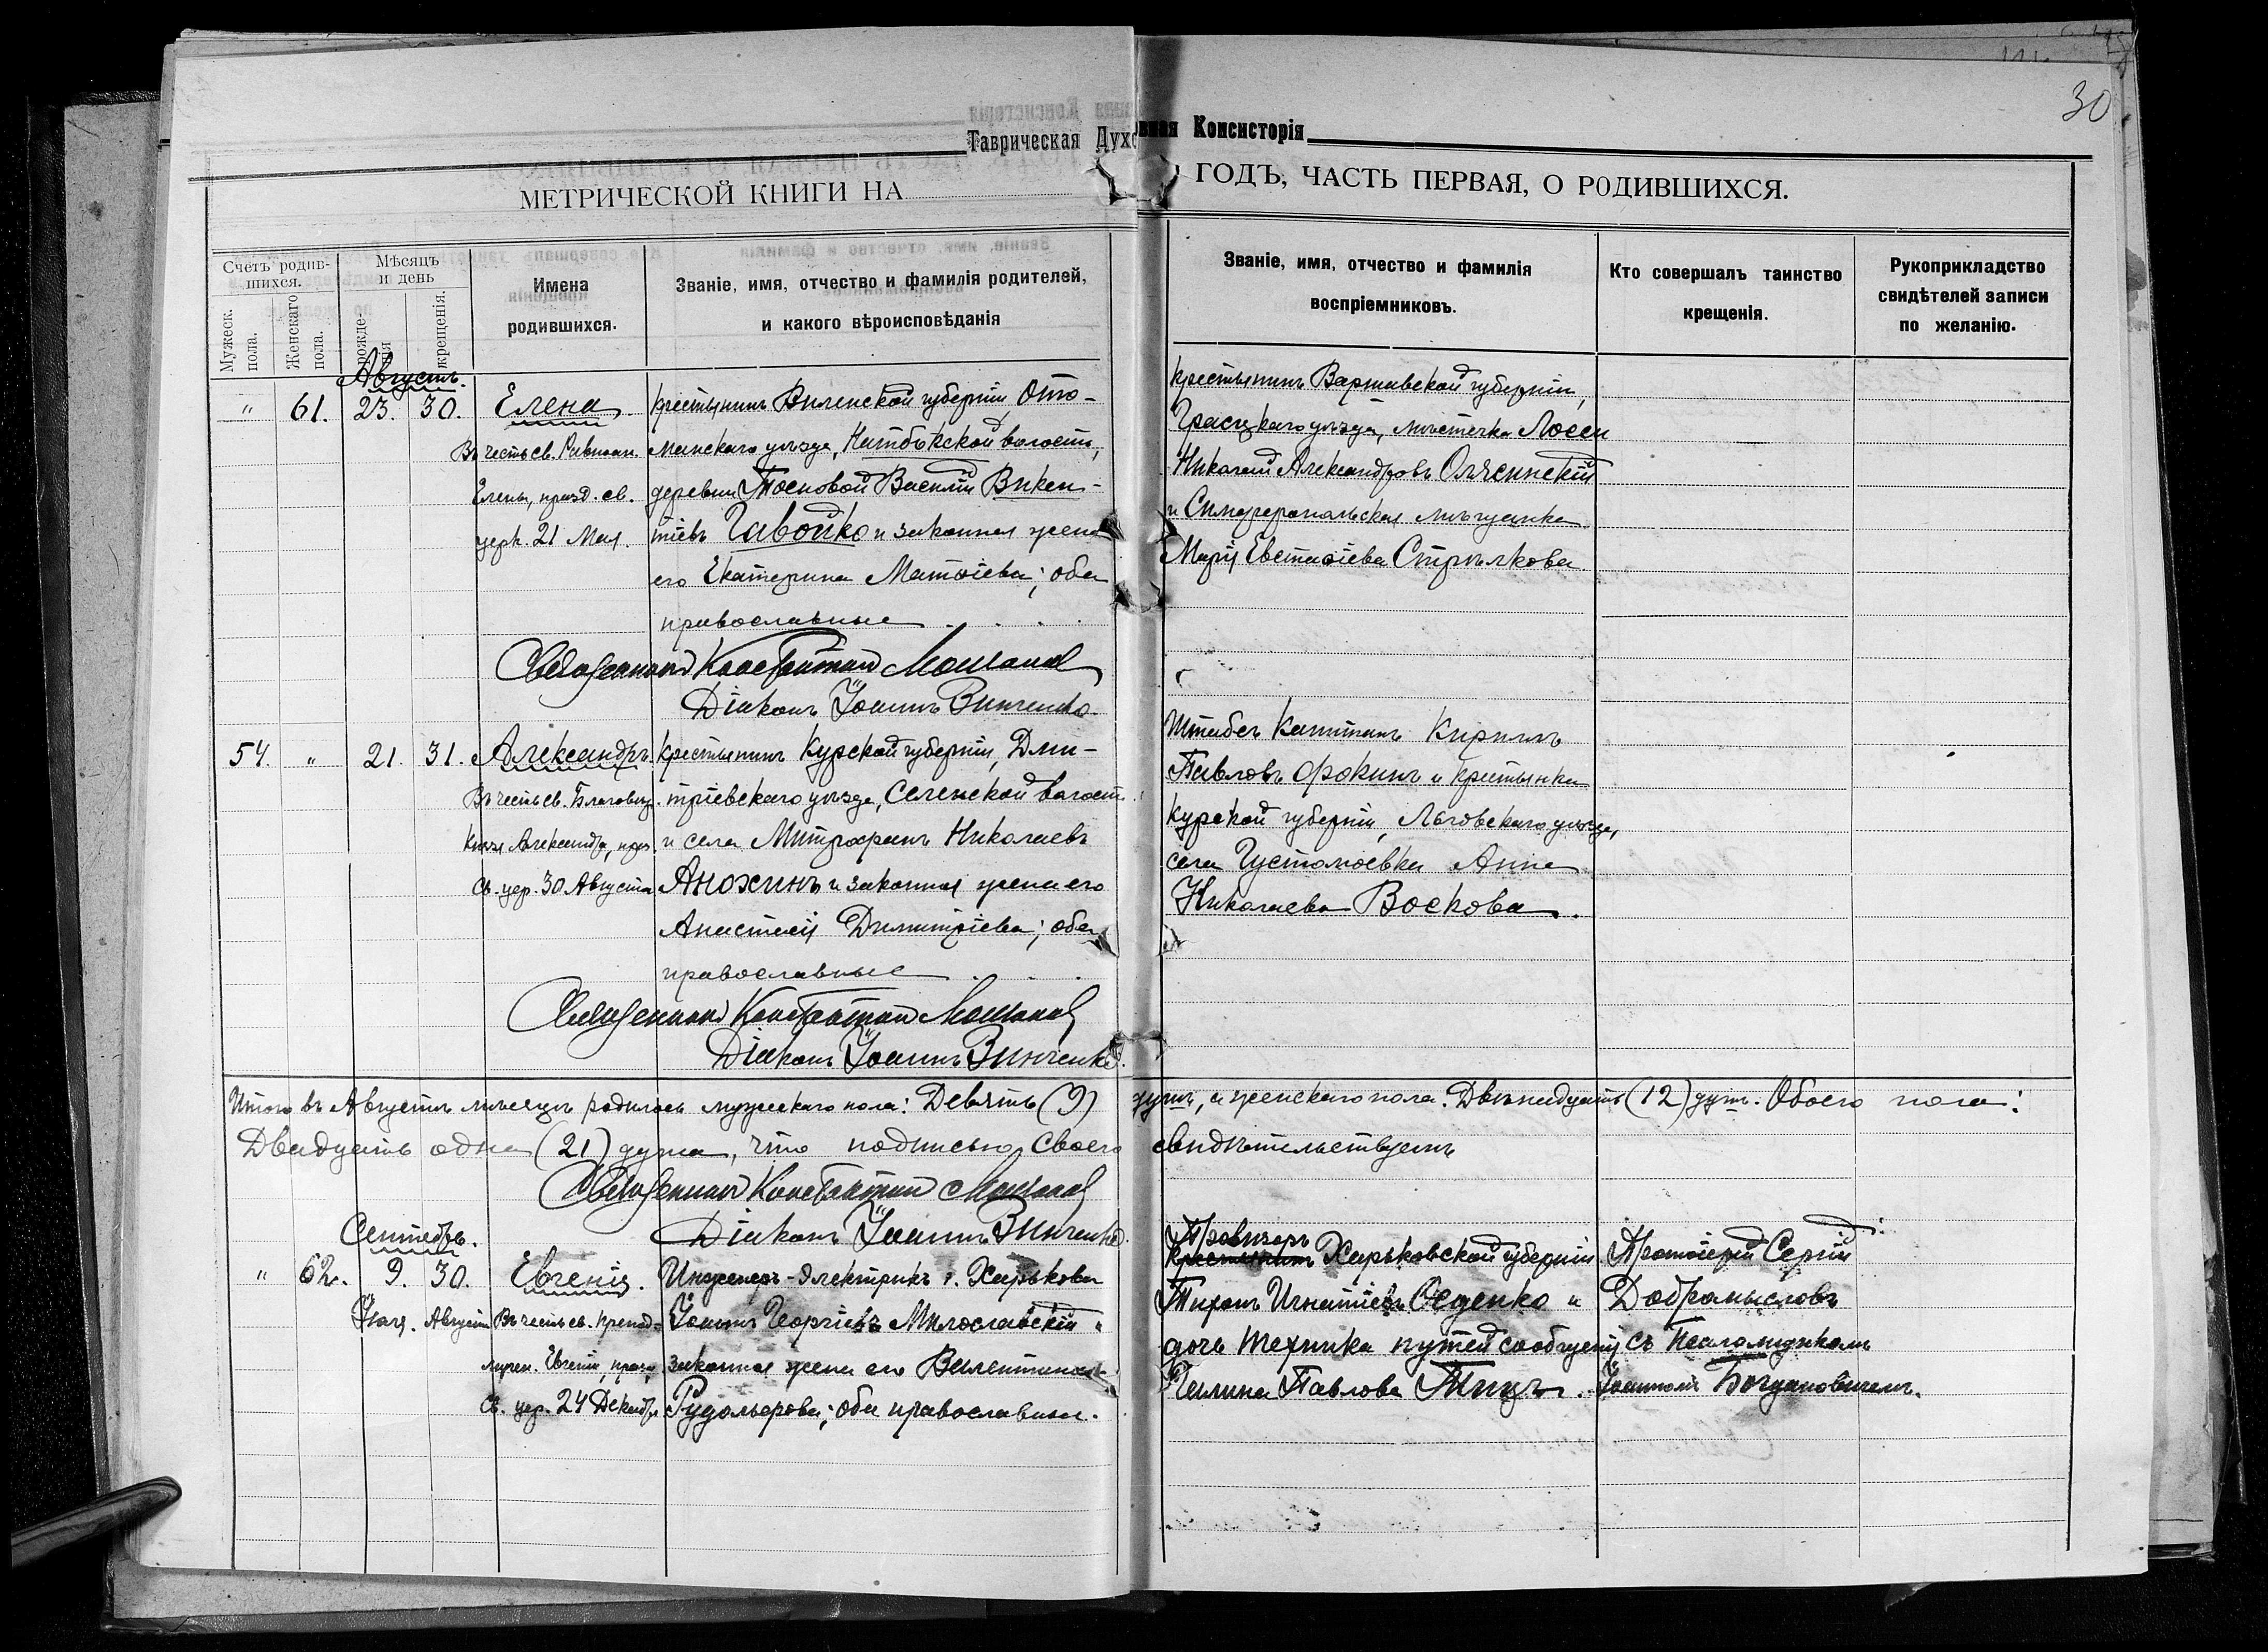 30
Таврическая Духовная Консисторія
МЕТРИЧЕСКОЙ КНИГИ НА ГОДЪ, ЧАСТЬ ПЕРВАЯ, О РОДИВШИХСЯ.
Счетъ родив-
шихся.
Мужеск. пола.
Женскаго пола.
Мѣсяцъ
и день
рожде-
нія
крещенія.
Имена
родившихся.
Званіе, имя, отчество и фамилія родителей,
и какого вѣроисповѣданія
Званіе, имя, отчество и фамилія
воспріемниковъ.
Кто совершалъ таинство
крещенія.
Рукоприкладство
свидѣтелей записи
по желанію.
Августъ.
" 61. 23. 30.
Елена
Въ честь св. Равноап.
Елены, празд. св.
церк. 21 Мая.
Крестьянинъ Виленской губерніи, Ошмянскаго уѣзда,
деревни Василій Викен-
тіевъ Гавойко и законная жена
его Екатерина Матѳіева; оба
православные
Крестьянинъ Варшавской губерніи,
уѣзда, мѣстечка
Николай Александровъ
и Симферопольская мѣщанка
Марія Евстафіева Стрѣлкова.
Священникъ Константинъ
Діаконъ Іоаннъ Винченко
54. " 21. 31.
Александръ.
Въ честь св. Благовѣр.
Князя Александра, праз.
св. цер. 30 Августа
Крестьянинъ Курской губерніи, Дми-
тріевскаго уѣзда, Селенской волости
и села Митрофанъ Николаевъ
Анохинъ и законная жена его
Анастасія Димитріева; оба
православные
Штабсъ Капитанъ Кириллъ
Павловъ Фокинъ и крестьянка
Курской губерніи, Льговскаго уѣзда,
села Густомоевка Анна
Николаева Воскова.
Священникъ Константинъ
Діаконъ Іоаннъ Винченко.
Итого въ Августѣ мѣсяцѣ родилось мужескаго пола: Девять (9) душъ, а женскаго пола: Двѣнадцать (12) душъ. Обоего пола:
Двадцать одна (21) душа, что подписью своего свидѣтельствуемъ
Священникъ Константинъ
Діаконъ Іоаннъ Винченко.
Сентябрь.
" 62. 9. 30.
Іюля. Августа
Евгенія.
Въ честь св. препод.
мучен. Евгеніи, празд.
св. цер. 24 Декабря
Инженеръ-Электрикъ г. Харькова
Іоаннъ Георгіевъ Милославскій и
законная жена его Валентина
Рудольфова; оба православные.
Провизоръ
Крестьянинъ Харьковской губерніи
Тихонъ Игнатіевъ и
дочь техника путей сообщенія
Галина Павлова
Протоіерей Сергій
Добромысловъ
съ Псаломщикомъ
Іоанномъ Богдановичемъ.